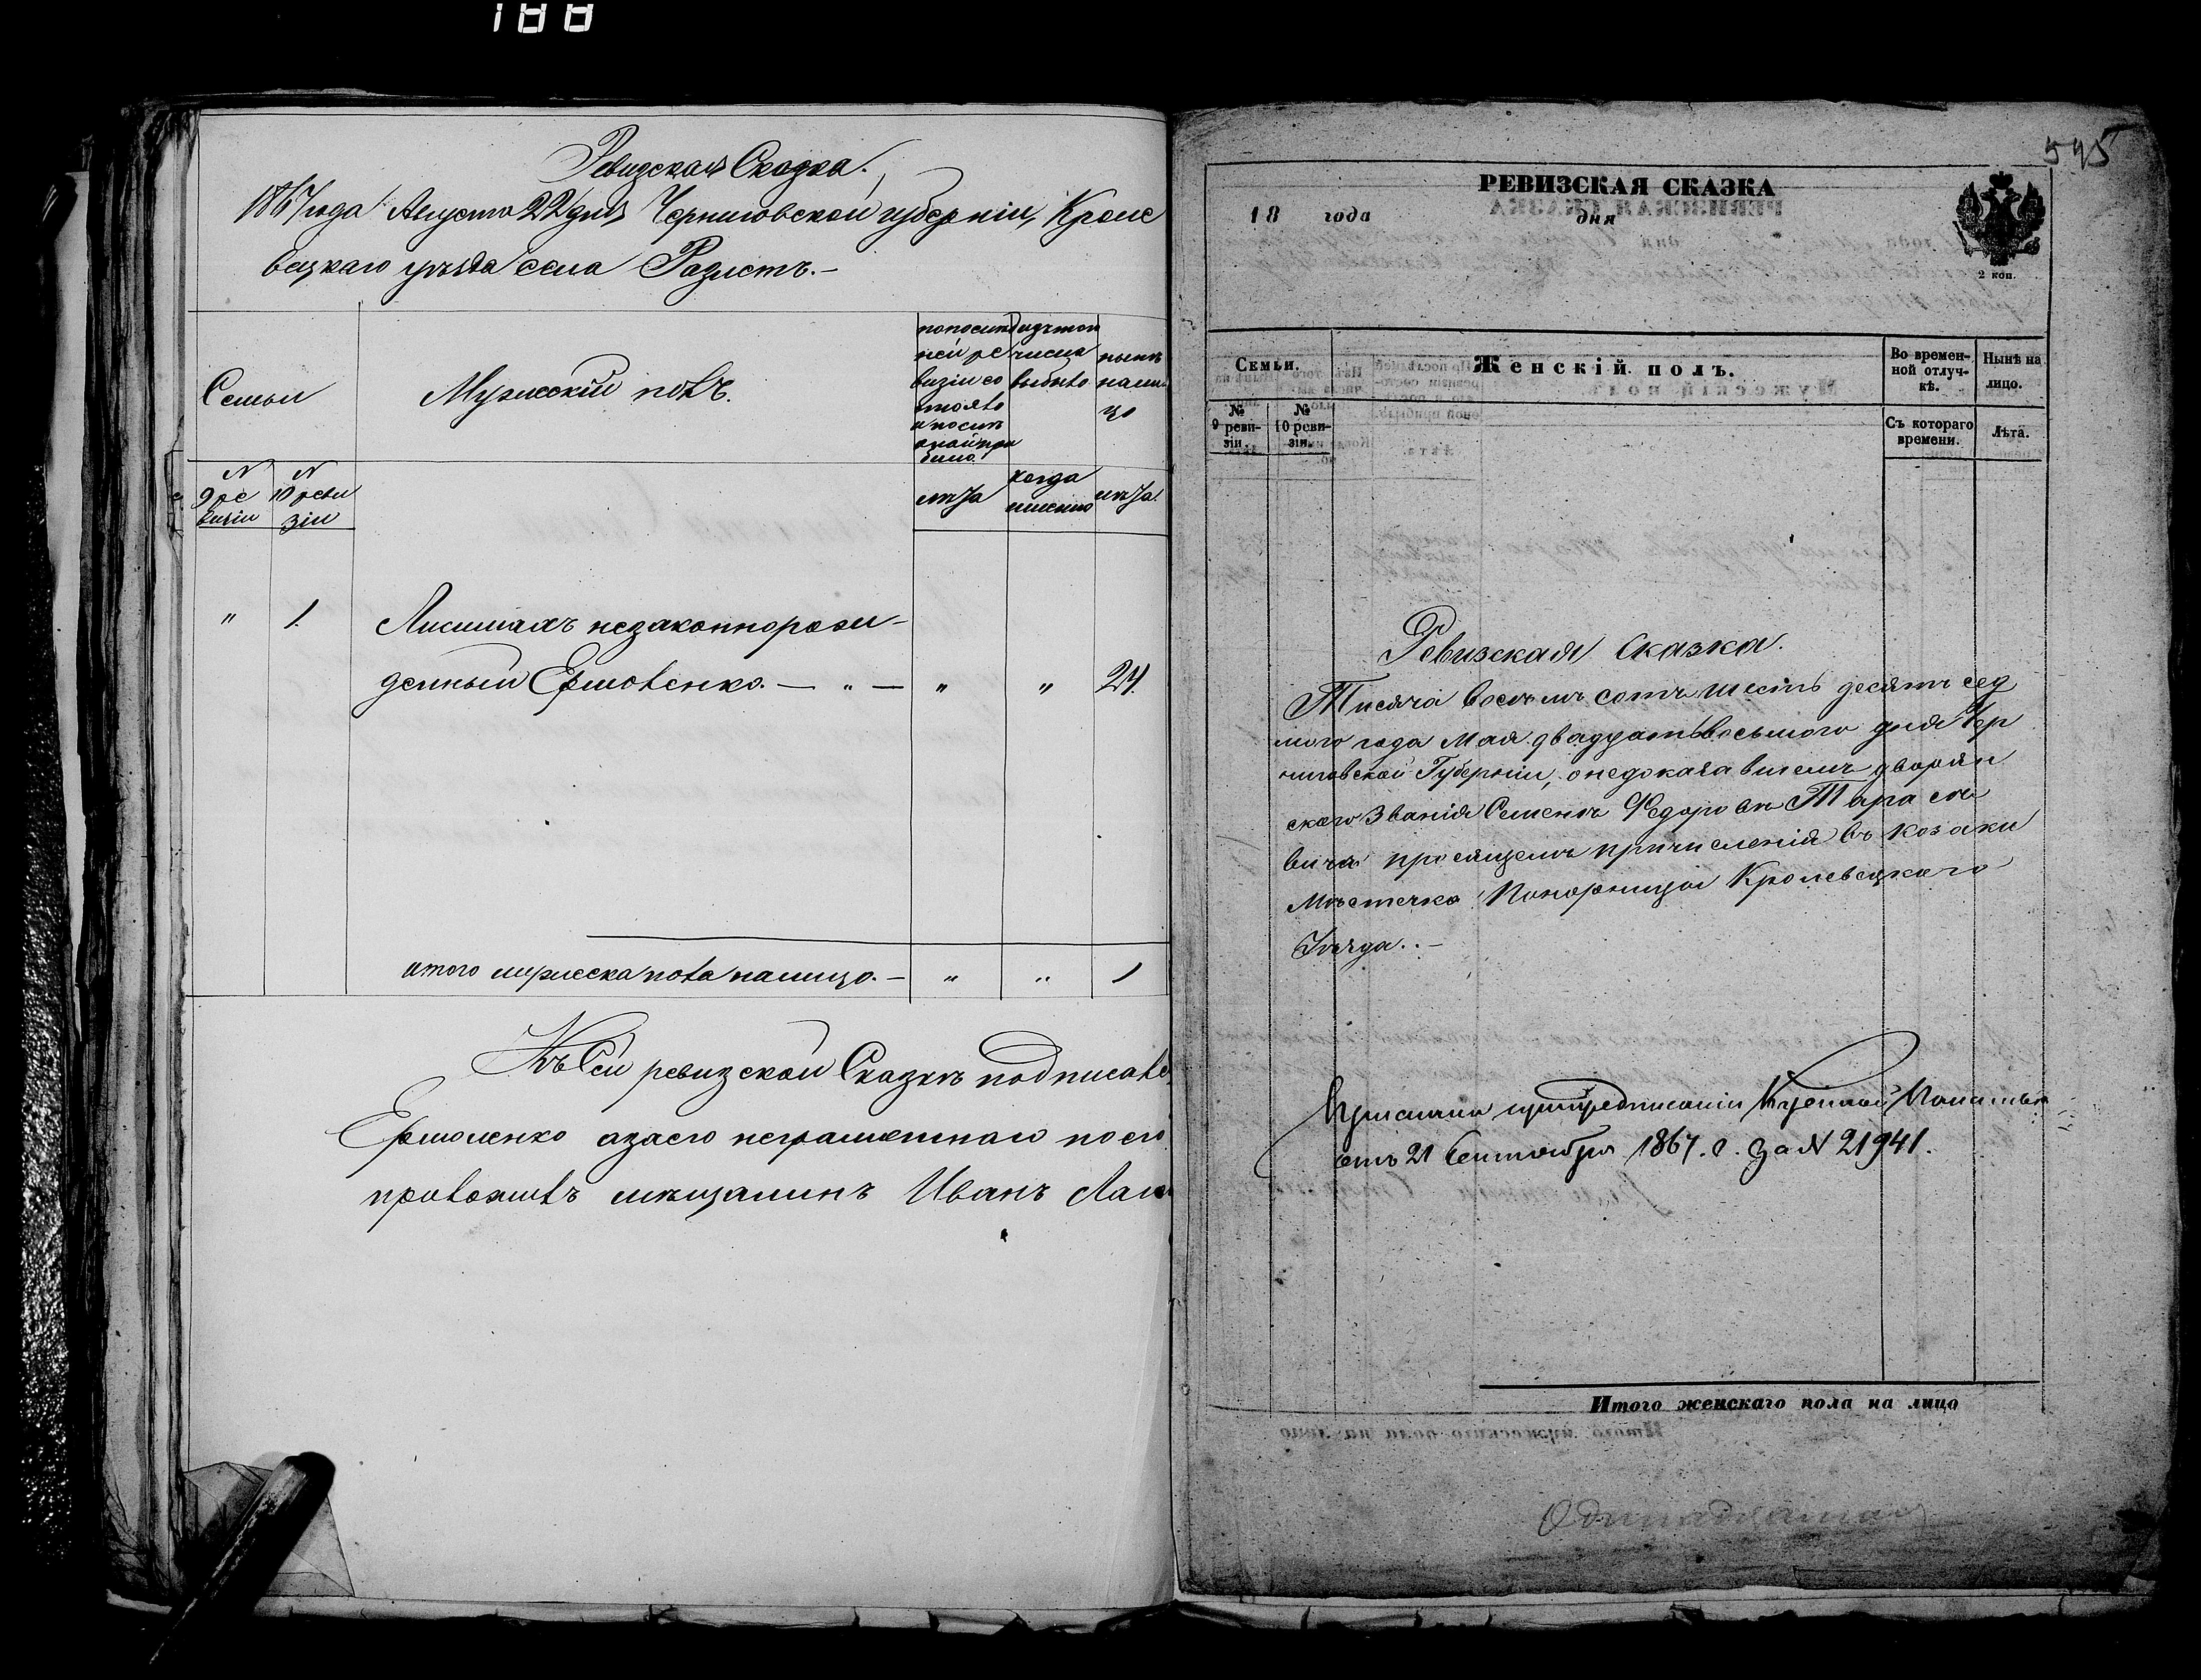 188
Ревизская Сказка.
1867 года Августа 22 дня Черниговской губерніи, Кроле
вецкаго уѣзда села Разлеты.-
Семьи
Мужескій полъ.
по послѣд
ней ре
визіи со
стояло
и послѣ
оной при
было.
изъ того
числа
выбыло
нынѣ
на ли
цо
N
9 ре
визіи
N
10 реви
зіи
лѣта
когда
именно
лѣта
" 1. Лисимахъ незаконнорож-
денный Ермоленко. — " — " " 24.
итого мужеска пола налицо. — " " 1
Къ Сей ревизской Сказкѣ подписалс
Ермоленко а за его неграмотнаго по его
мѣщанинъ Иванъ
545
РЕВИЗСКАЯ СКАЗКА
18 года дня
2 коп.
Семьи.
№
9 реви-
зіи.
№
10 реви-
зіи.
Женскій полъ.
Во времен-
ной отлуч-
кѣ.
Нынѣ на
лицо.
Съ котораго
времени.
Лѣта.
Ревизская Сказка.
Тисяча восемъ сотъ шесть десятъ сед
мого года мая двадцать восьмого дня Чер
ниговской Губерніи, о недоказавшемъ дворян
ского Званія Семенъ Федоровъ Тарасе
вича просящемъ причисленія въ козаки
Мѣстечка Понорницы Кролевецкаго
Уѣзда..-
при предписаніи Казенной Палаты
отъ 21 Сентября 1867. г. За N 21941.
Итого женскаго пола на лицо
Одинадцатая